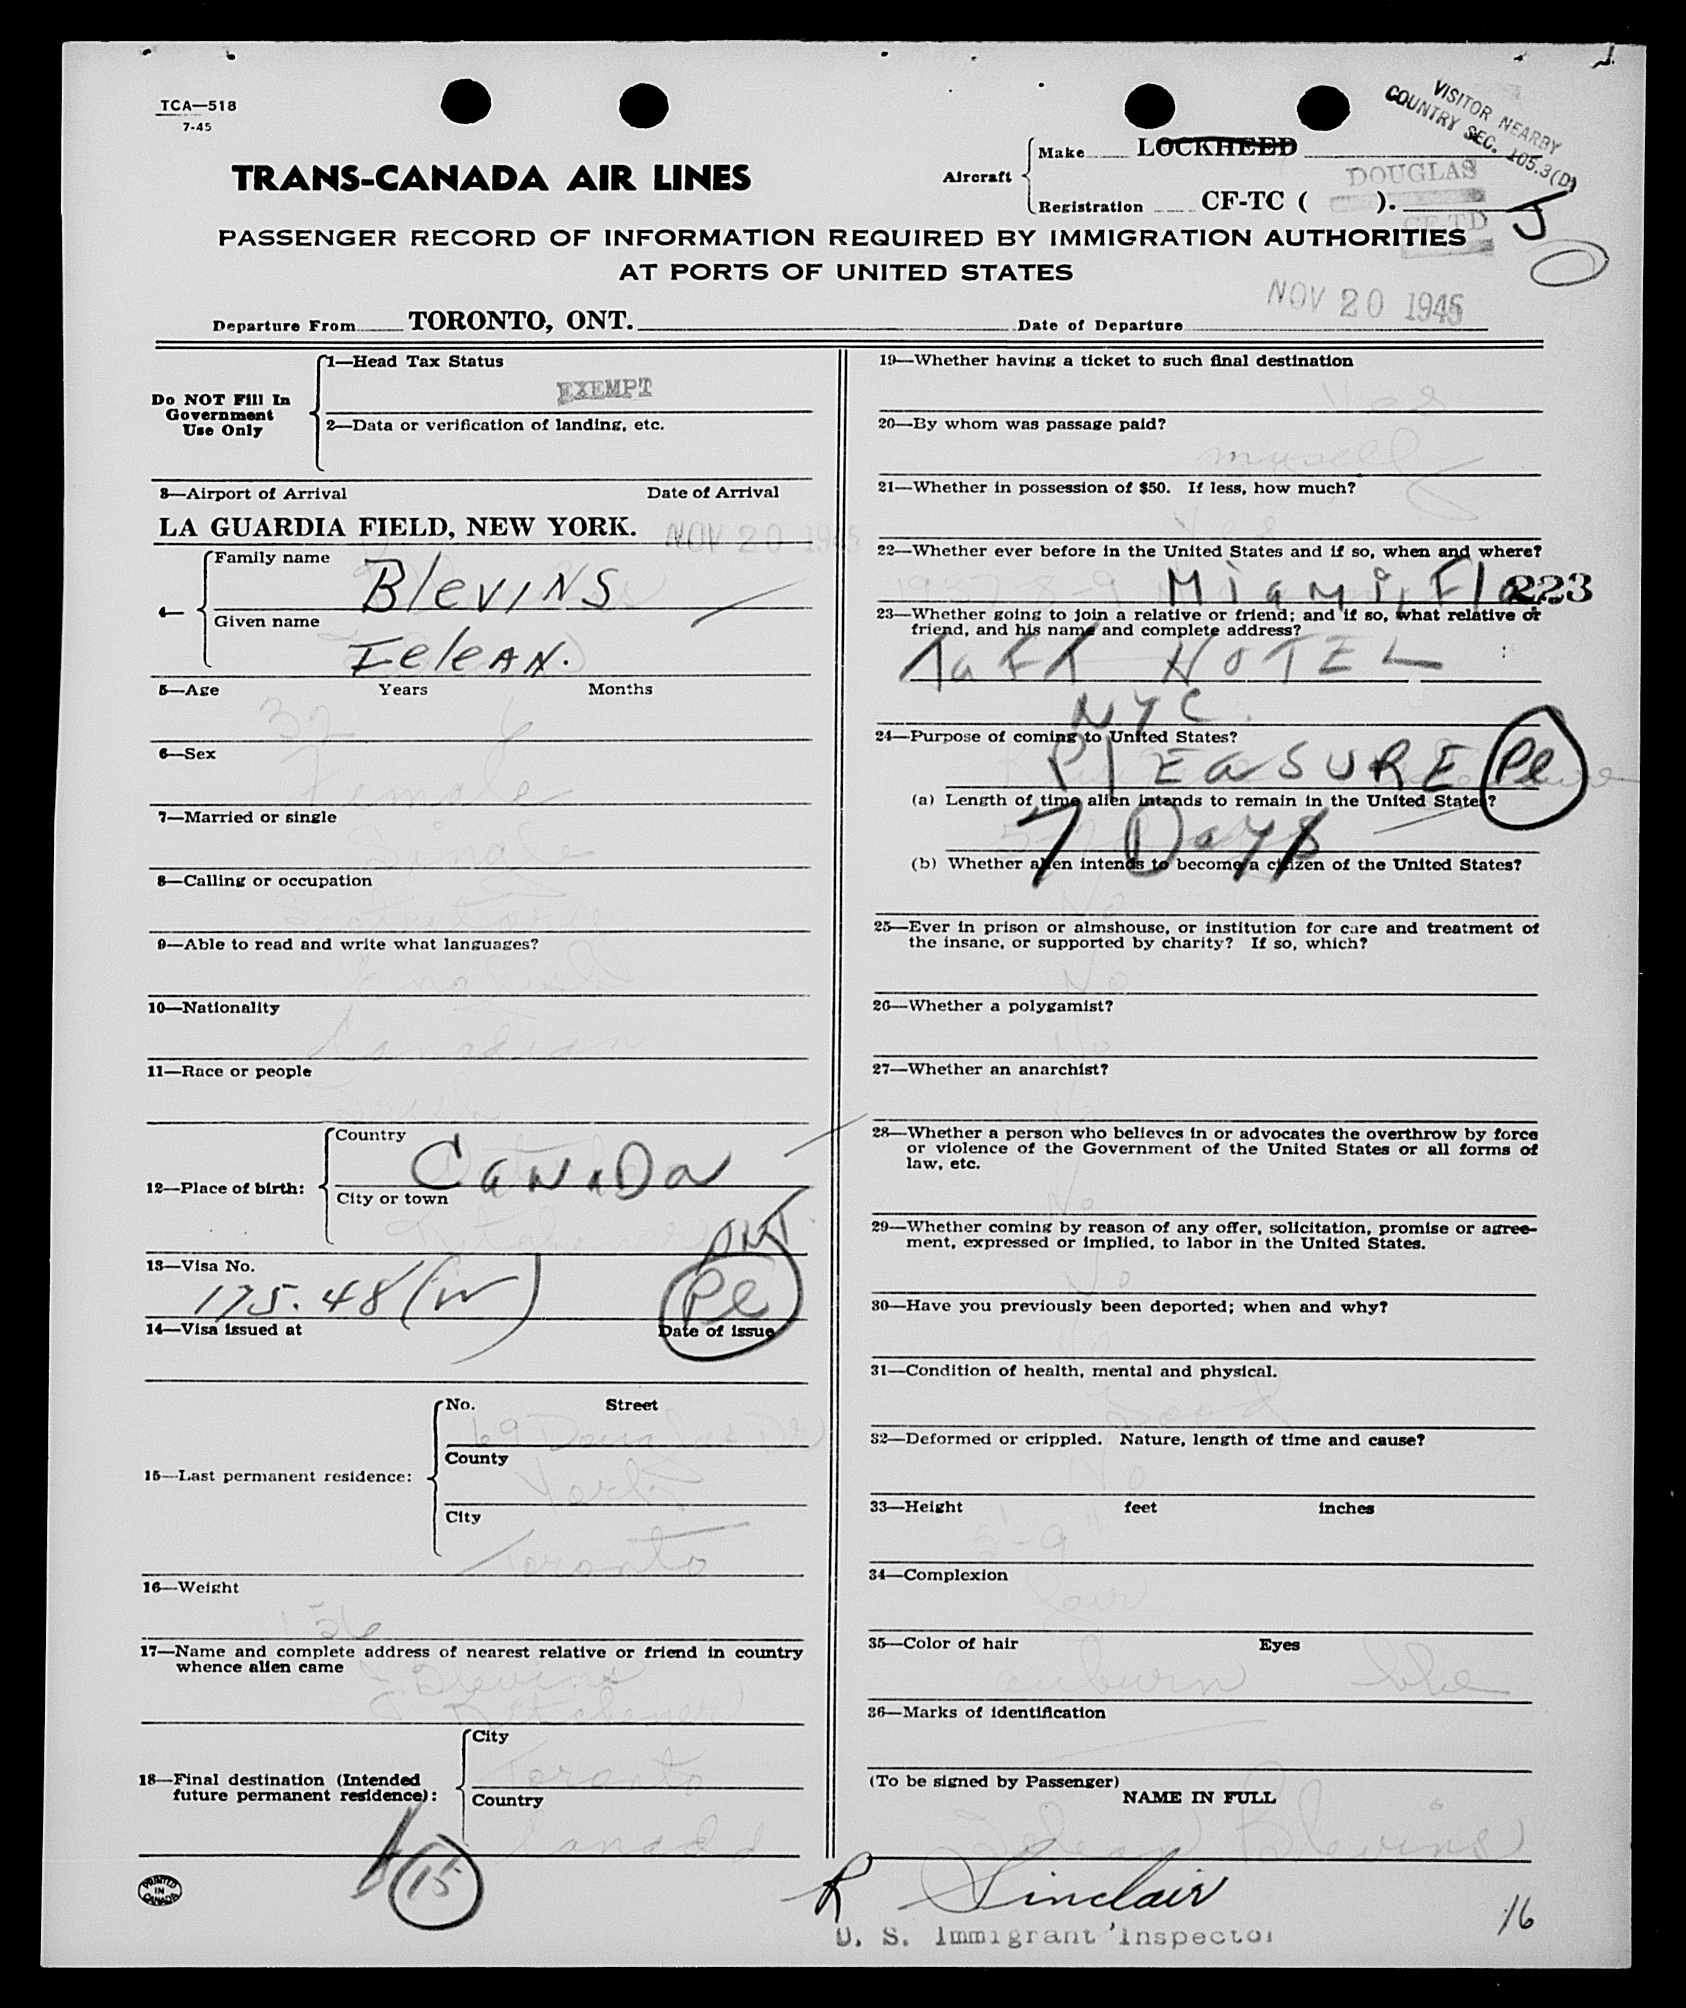 TCA—518
7-45
VISITOR NEARBY
COUNTRY SEC. 105.3(D)
TRANS-CANADA AIR LINES
Aircraft
Make LOCKHEED
DOUGLAS
Registration CF-TC ( ).
CF-TD
PASSENGER RECORD OF INFORMATION REQUIRED BY IMMIGRATION AUTHORITIES
AT PORTS OF UNITED STATES
Departure From TORONTO, ONT. Date of Departure NOV 20 1945
Do NOT Fill In
Government
Use Only
1—Head Tax Status
EXEMPT
2—Data or verification of landing, etc.
3—Airport of Arrival Date of Arrival
LA GUARDIA FIELD, NEW YORK. NOV 20 1945
4—
Family name
Blevins
Given name
Ielean.
5—Age Years Months
32 6
6—Sex
Female
7—Married or single
Single
8—Calling or occupation
9—Able to read and write what languages?
English
10—Nationality
Canadian
11—Race or people
12—Place of birth:
Country
Canada
City or town
Kitchener ONT
13—Visa No.
175.48 (w) Pl
14—Visa issued at Date of issue
15—Last permanent residence:
No. Street
69
County
York
City
Toronto
16—Weight
136
17—Name and complete address of nearest relative or friend in country
whence alien came
Blevins
Kitchener
18—Final destination (Intended
future permanent residence):
City
Toronto
Country
Canada
15
PRINTED
IN
CANADA
19—Whether having a ticket to such final destination
Yes
20—By whom was passage paid?
myself
21—Whether in possession of $50. If less, how much?
Yes
22—Whether ever before in the United States and if so, when and where?
1937-8-9 Miami, Fla. 223
23—Whether going to join a relative or friend; and if so, what relative or
friend, and his name and complete address?
Taft HOTEL
NYC.
24—Purpose of coming to United States?
PlEaSURE Pl
(a) Length of time alien intends to remain in the United States?
7 Days
(b) Whether alien intends to become a citizen of the United States?
No
25—Ever in prison or almshouse, or institution for care and treatment of
the insane, or supported by charity? If so, which?
No
26—Whether a polygamist?
No
27—Whether an anarchist?
No
28—Whether a person who believes in or advocates the overthrow by force
or violence of the Government of the United States or all forms of
law, etc.
No
29—Whether coming by reason of any offer, solicitation, promise or agree-
ment, expressed or implied, to labor in the United States.
No
30—Have you previously been deported; when and why?
No
31—Condition of health, mental and physical.
Good
32—Deformed or crippled. Nature, length of time and cause?
No
33—Height feet inches
5'-9"
34—Complexion
fair
35—Color of hair Eyes
auburn blue
36—Marks of identification
(To be signed by Passenger)
NAME IN FULL
Ielean Blevins
R Sinclair
U. S. Immigrant Inspector
16